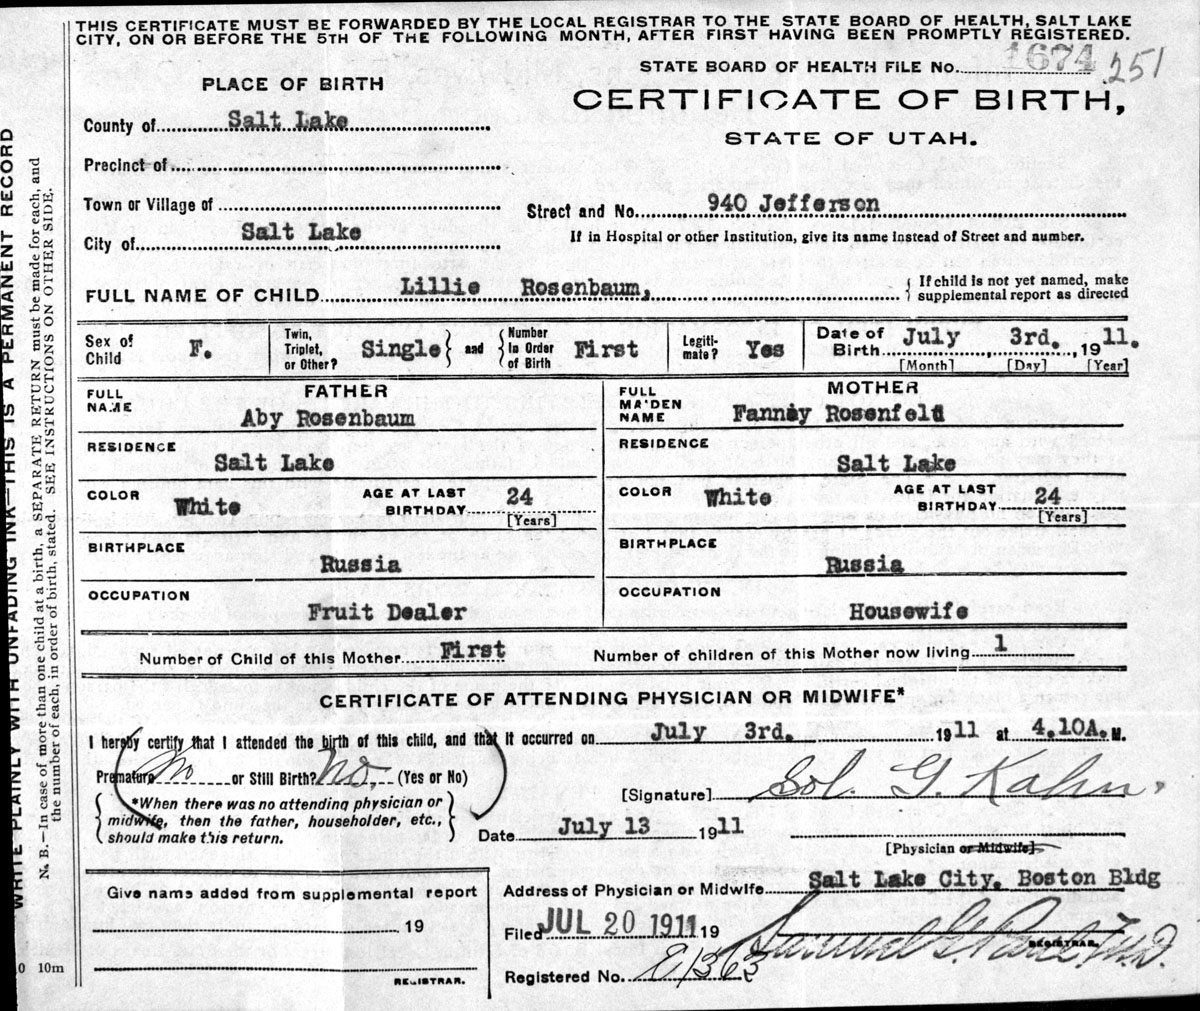 THIS CERTIFICATE MUST BE FORWARDED BY THE LOCAL REGISTRAR TO THE STATE BOARD OF HEALTH, SALT LAKE
CITY, ON OR BEFORE THE 5TH OF THE FOLLOWING MONTH, AFTER FIRST HAVING BEEN PROMPTLY REGISTERED.
STATE BOARD OF HEALTH FILE No. 1674 251
PLACE OF BIRTH
CERTIFICATE OF BIRTH,
STATE OF UTAH.
County of Salt Lake
Precinct of
Town or Village of
Street and No. 940 Jefferson
City of Salt Lake
If in Hospital or other Institution, give its name instead of Street and number.
FULL NAME OF CHILD Lillie Rosenbaum,
If child is not yet named, make
supplemental report as directed
Sex of Child F.
Twin, Triplet, or Other? Single and Number In Order of Birth First
Legitimate? Yes
Date of Birth July 3rd. 1911.
[Month] [Day] [Year]
FATHER
FULL NAME Aby Rosenbaum
RESIDENCE Salt Lake
COLOR White AGE AT LAST BIRTHDAY 24 [Years]
BIRTHPLACE Russia
OCCUPATION Fruit Dealer
MOTHER
FULL MAIDEN NAME Fanney Rosenfeld
RESIDENCE Salt Lake
COLOR White AGE AT LAST BIRTHDAY 24 [Years]
BIRTHPLACE Russia
OCCUPATION Housewife
Number of Child of this Mother First Number of children of this Mother now living 1
CERTIFICATE OF ATTENDING PHYSICIAN OR MIDWIFE*
I hereby certify that I attended the birth of this child, and that it occurred on July 3rd. 1911 at 4.10A. M.
Premature No or Still Birth? No. (Yes or No)
*When there was no attending physician or
midwife, then the father, householder, etc.,
should make this return.
[Signature] Sol. G. Kahn.
Date July 13 1911
[Physician or Midwife]
Give name added from supplemental report
19
REGISTRAR.
Address of Physician or Midwife Salt Lake City, Boston Bldg
Filed JUL 20 1911 19
REGISTRAR.
M.D.
Registered No. 1363
WRITE PLAINLY WITH UNFADING INK—THIS IS A PERMANENT RECORD
N. B.—In case of more than one child at a birth, a SEPARATE RETURN must be made for each, and
the number of each, in order of birth, stated. SEE INSTRUCTIONS ON OTHER SIDE.
10m